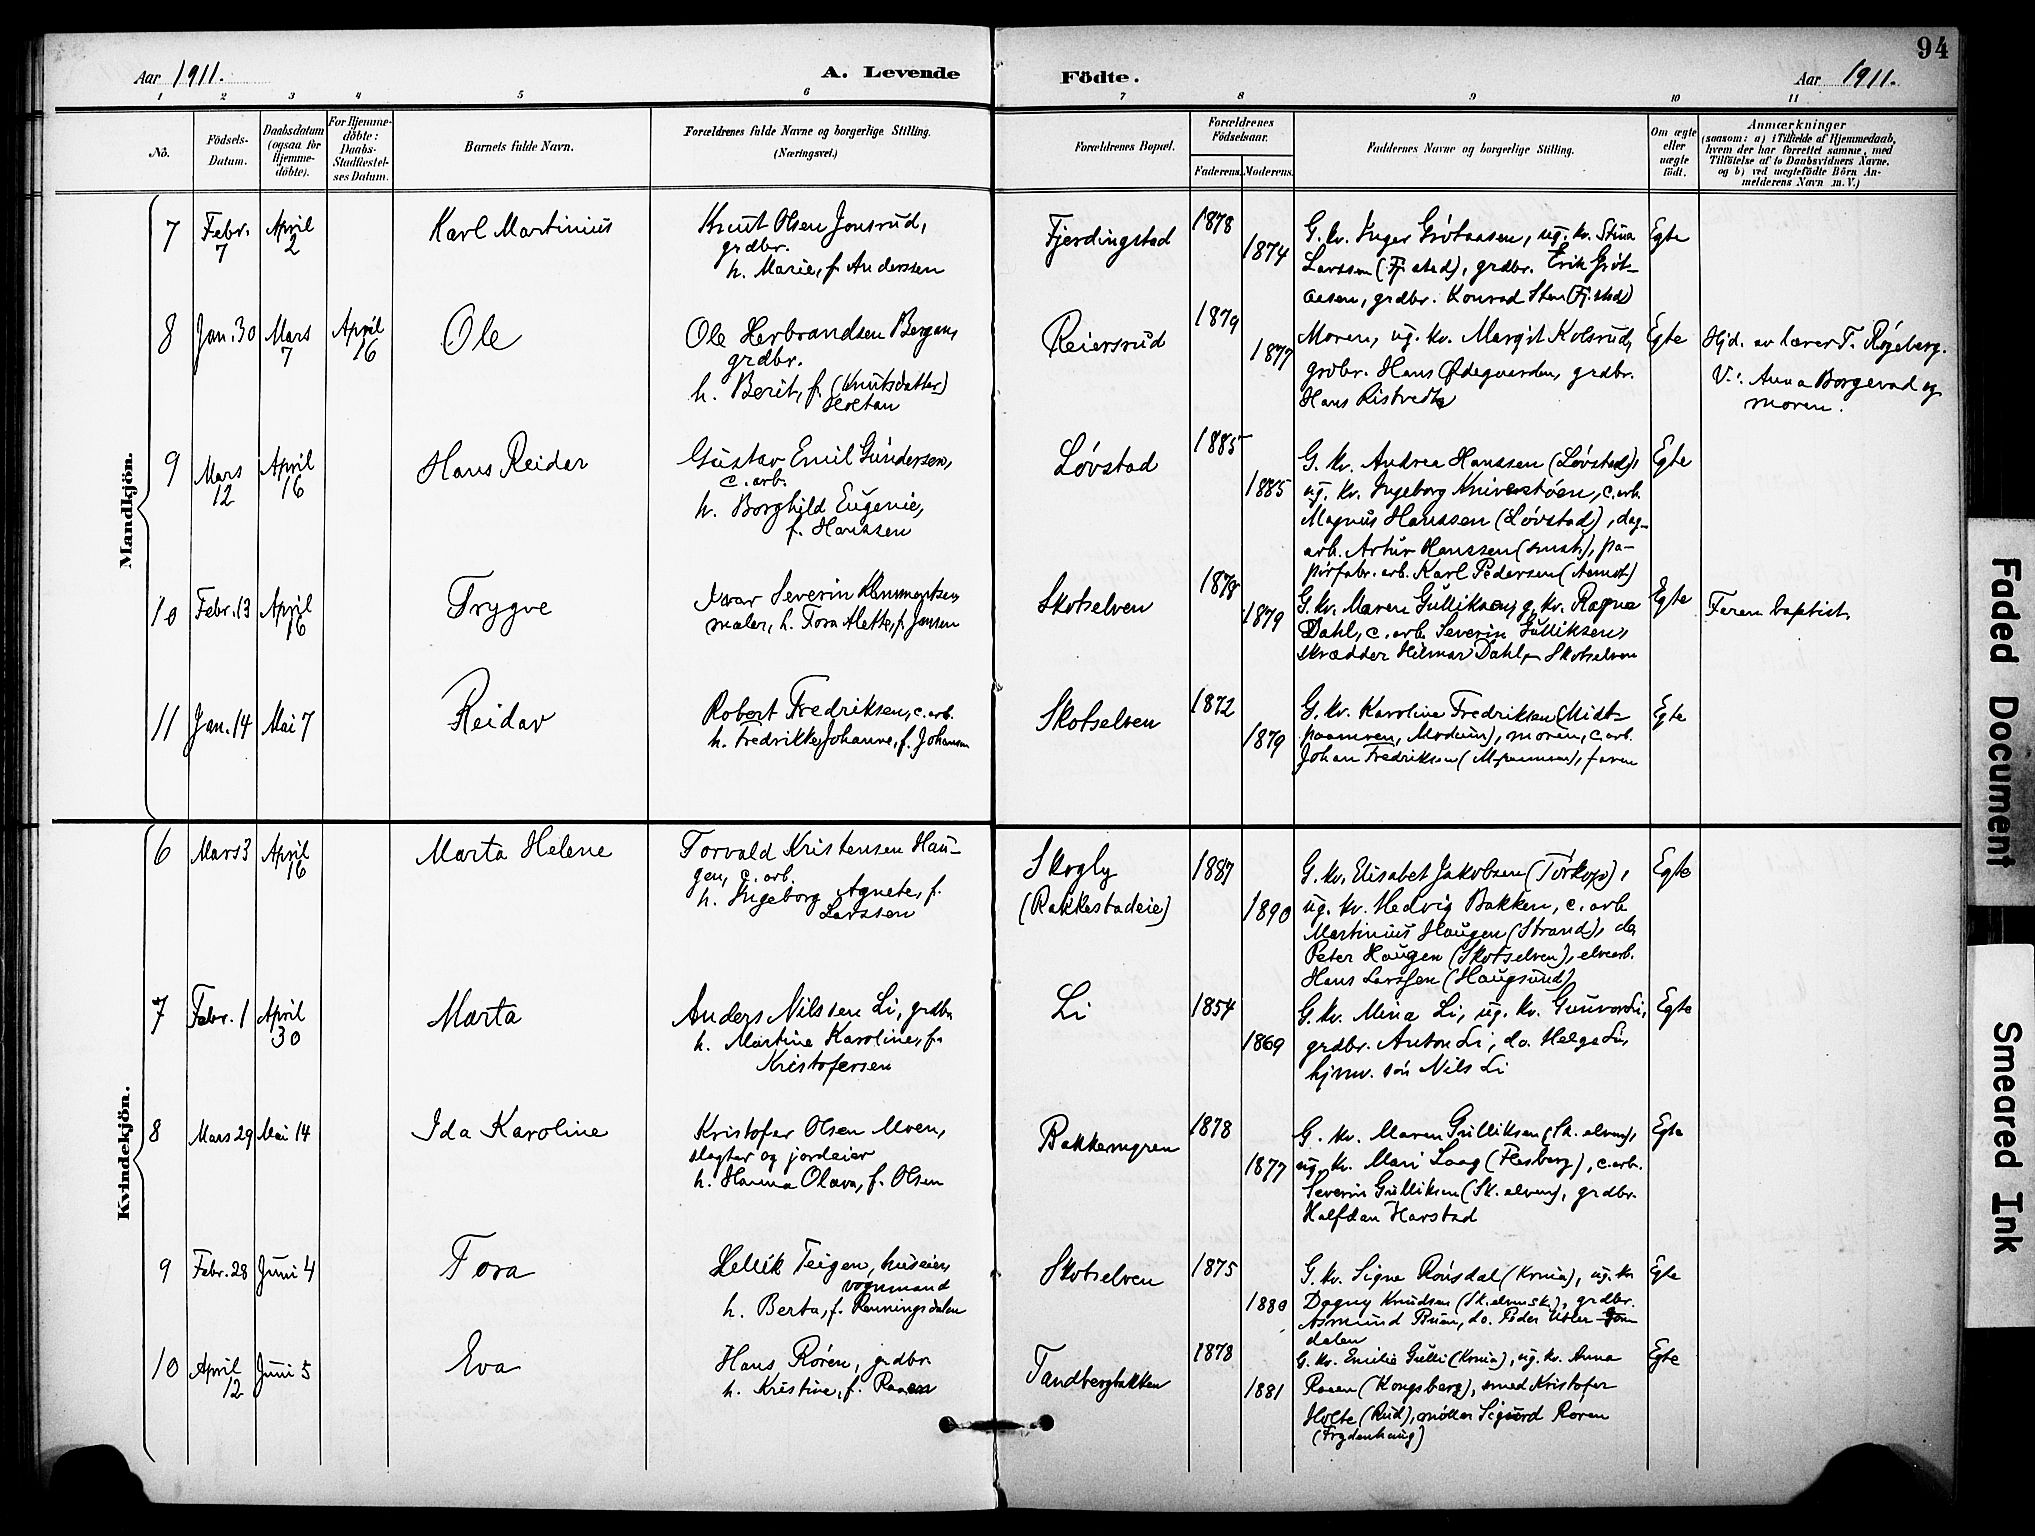 94
Aar 1911.
A. Levende
Födte.
Aar 1911.
1 2 3 4 5 6 7 8 9 10 11
No.
Födsels-
Datum.
Daabsdatum
(ogsaa for
Hjemme-
döbte).
For Hjemme-
döbte:
Daabs-
Stadfæstel-
ses Datum.
Barnets fulde Navn.
Forældrenes fulde Navne og borgerlige Stilling.
(Næringsvei.)
Forældrenes Bopæl.
Forældrenes
Födselsaar.
Faderens. Moderens.
Faddernes Navne og borgerlige Stilling.
Om ægte
eller
uægte
födt.
Anmærkninger
(saasom: a) i Tilfælde af Hjemmedaab,
hvem der har forrettet samme, med
Tilföielse af to Daabsvidners Navne.
og b) ved uægtefödte Börn An-
melderens Navn m. V.)
Mandkjön.
7 Febr. 7 April 2
Karl Martinius
Knut Olsen Jonsrud,
grdbr.
h. Marie, f. Anderssen
Fjerdingstad
1878
1874
G. kv. Inger Grötaasen, ug. kv. Stina
Larssen (Fj. stad), grdbr. Erik Gröt-
aasen, grdbr. Konrad Sten (Fj. stad)
Egte
8 Jan. 30 Mars 7 April 16
Ole
Ole Herbrandsen Bergan,
grdbr.
h. Berit, f. (Knutsdatter)
Holtan
Reiersrud
1879
1877
Moren, ug. kv. Margit Kolsrud,
grdbr. Hans Ødegaarden, grdbr.
Hans Ristvedt
Egte
Hjd. av lærer T. Røgeberg.
V.: Anna Borgerud og
moren.
9 Mars 12 April 16
Hans Reidar
Gustav Emil Gundersen,
c. arb.
h. Borghild Eugenie,
f. Hanssen
Løvstad
1885
1885
G. kv. Andrea Hanssen (Løvstad),
ug. kv. Ingeborg Kniverstøen, c. arb.
Magnus Hanssen (Løvstad), dag-
arb. Artur Hanssen (smst), pa-
pirfabr. arb. Karl Pedersen (Aamot)
Egte
10 Febr. 13 April 16
Trygve
Ivar Severin Klemmentsen
maler, h. Tora Alette, f. Jensen
Skotselven
1878
1879
G. kv. Maren Gulliksen, g. kv. Ragna
Dahl, c. arb. Severin Gulliksen,
skrædder Hilmar Dahl, Skotselven
Egte
Faren baptist.
11 Jan. 14 Mai 7
Reidar
Robert Fredriksen, c. arb.
h. Fredrikke Johanne, f. Johansen
Skotselven
1872
1879
G. kv. Karoline Fredriksen (Midt-
paamoen, Modum), moren, c. arb.
Johan Fredriksen, faren
Egte
Kvindekjön.
6 Mars 3 April 16
Marta Helene
Torvald Kristensen Hau-
gen, c. arb.
h. Ingeborg Agnete, f.
Larssen
Skogly
(Rakkestadeie)
1887
1890
G. kv. Elisabet Jakobsen (Torkop),
ug. kv. Hedvig Bakken, c. arb
Martinius Haugen (Strand), do
Peter Haugen (Skotselven), elvearb.
Hans Larssen (Haugsund)
Egte
7 Febr. 1 April 30
Marta
Anders Nilssen Li, grdbr
h. Martine Karoline, f.
Kristofersen
Li
1854
1869
G. kv. Mina Li, ug. kv. Gunvor Li,
grdbr. Anton Li, do. Helge Li,
hjmv. søn Nils Li
Egte
8 Mars 29 Mai 14
Ida Karoline
Kristofer Olsen Moen,
slagter og jordeier
h. Hanna Olava, f. Olsen
Bakkemyren
1878
1877
G. kv. Maren Gulliksen (Sk. elven),
ug. kv. Mari Laag (Flesberg), c. arb.
Severin Gulliksen (Sk. elven), grdbr.
Halfdan Harstad
Egte
9 Febr. 28 Juni 4
Tora
Hellik Teigen, huseier,
vognmand
h. Berta, f. Renningsdalen
Skotselven
1875
1880
G. kv. Signe Rønsdal (Krnia), ug. kv
Dagny Knudsen (Sk. elven), grdbr.
Asmund Ruen, do. Peder
dalen
Egte
10 April 12 Juni 5
Eva
Hans Røren, grdbr
h. Kristine, f. Raaen
Tandbergbakken
1878
1881
G. kv. Emilie Gulli (Krnia), ug. kv. Anna
Raaen (Kongsberg), smed Kristofer
Holte (Rud), møller Sigurd Røren
(Frydenhaug)
Egte
Faded Document
Smeared Ink